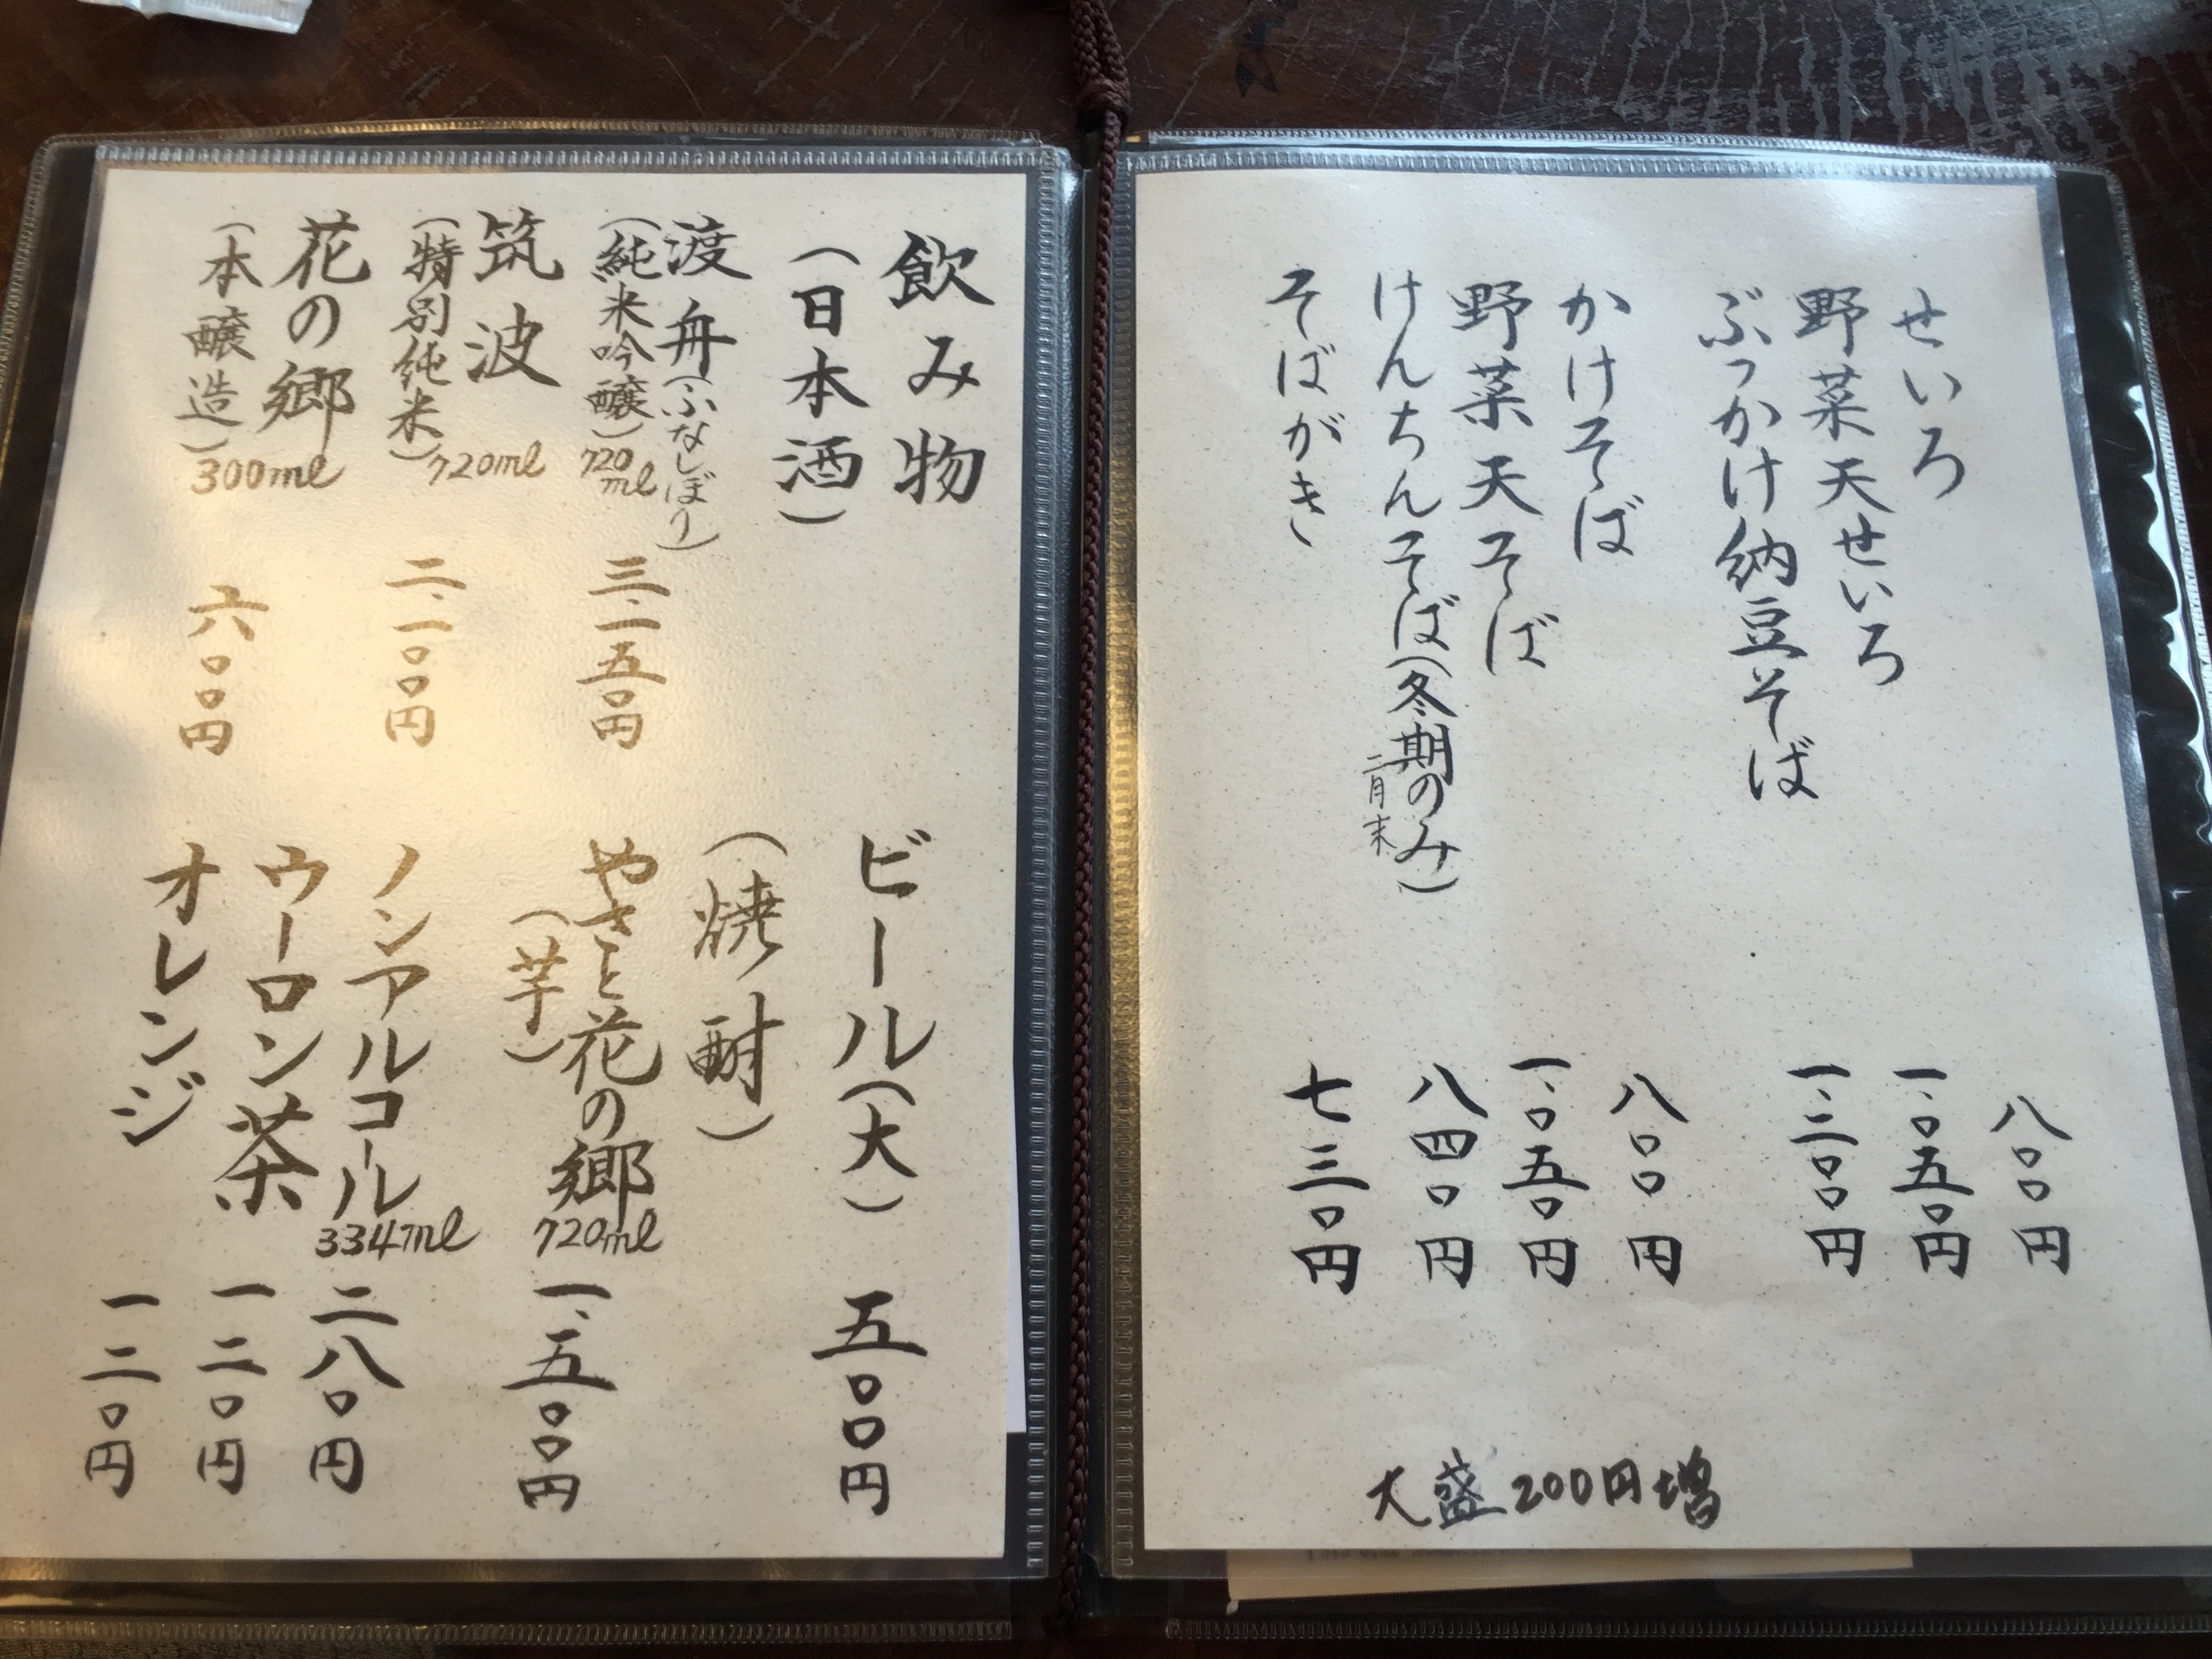 せいろ 八〇〇円
野菜天せいろ 一、〇五〇円
ぶっかけ納豆そば 一、二〇〇円
かけそば 八〇〇円
野菜天そば 一、〇五〇円
けんちんそば(冬期のみ) 八四〇円
二月末
そばがき 七三〇円
大盛200円増
飲み物
(日本酒)
渡舟(ふなしぼり)
(純米吟醸)720ml 三、一五〇円
筑波
(特別純米)720ml 二、一〇〇円
花の郷
(本醸造)300ml 六〇〇円
ビール(大) 五〇〇円
(焼酎)
やさと花の郷
(芋) 720ml 一、五〇〇円
ノンアルコール 334ml 二八〇円
ウーロン茶 一二〇円
オレンジ 一二〇円